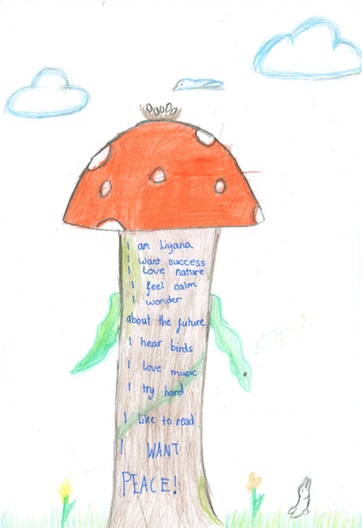 I am Liyana
I want success
I Love nature
I feel calm
I wonder
about the future
I hear birds
I love music
I try hard
I like to read
I WANT
PEACE!